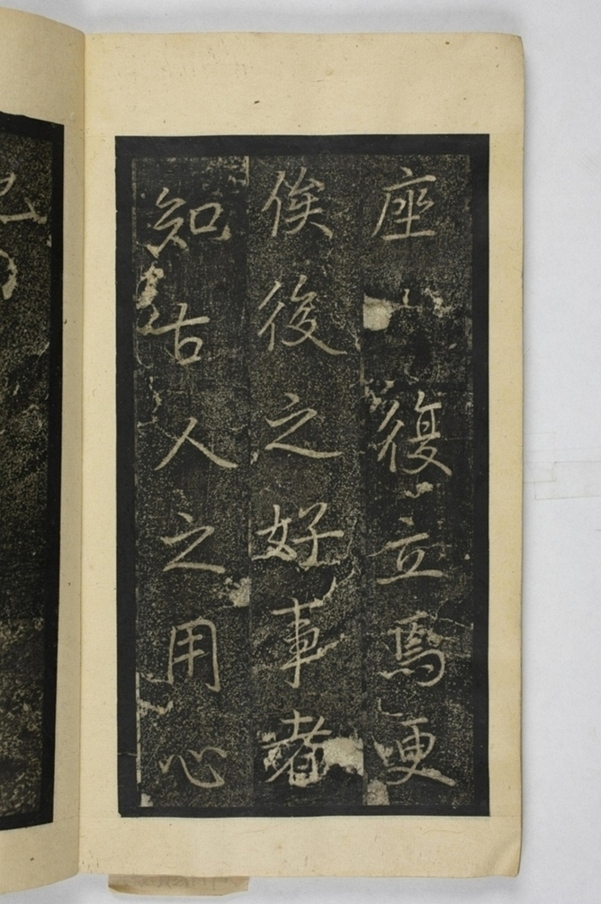 座復立焉更
俟後之好事者
知古人之用心